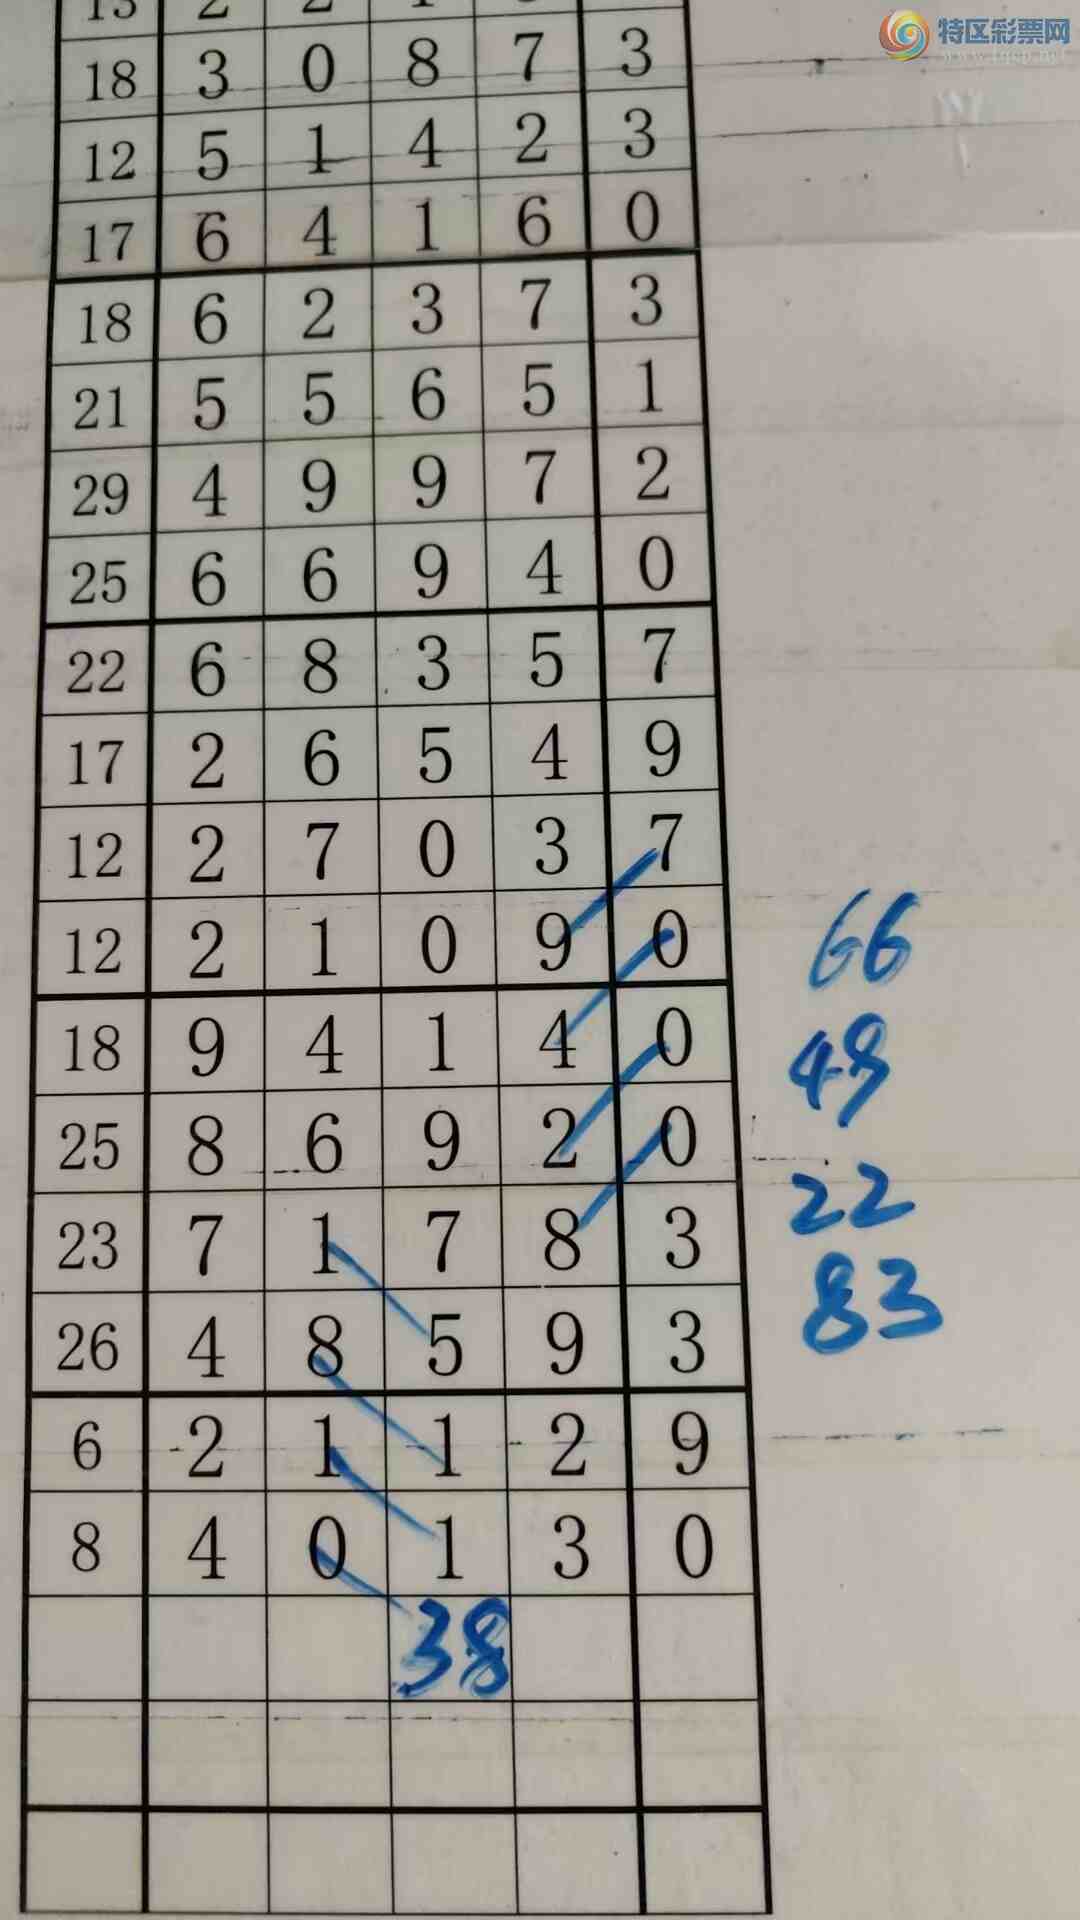 特区彩票网
18 3 0 8 7 3
12 5 1 4 2 3
17 6 4 1 6 0
18 6 2 3 7 3
21 5 5 6 5 1
29 4 9 9 7 2
25 6 6 9 4 0
22 6 8 3 5 7
17 2 6 5 4 9
12 2 7 0 3 7
12 2 1 0 9 0
66
18 9 4 1 4 0
49
25 8 6 9 2 0
22
23 7 1 7 8 3
83
26 4 8 5 9 3
6 2 1 1 2 9
8 4 0 1 3 0
38